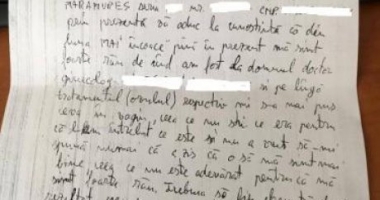 MARAMUREȘ nr. CNP
prin prezenta vă aduc la cunoștință că din
luna MAI încoace până în prezent mă simt
foarte rău de când am fost la domnul doctor
ginecolog și pe lângă
tratamentul (ovulul) respectiv mi s-a mai pus
ceva în vagin, ceea ce nu știu ce era pentru
că l-am întrebat ce este și nu a vrut să-mi
spună numai că a zis că o să mă simt mai
bine ceea ce nu este adevărat pentru că mă
simt foarte rău. Trebuia să